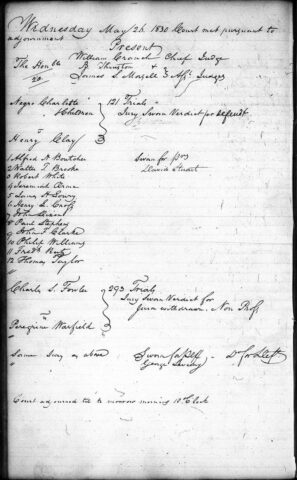 Wednesday May 26. 1830 Court met pursuant to
adjournment
Present
William Cranch Chief Judge
The Honble B Thruston &
James S. Morsell Esqrs Judges
Negro Charlotte 121 Trials
Children Jury Sworn Verdict for defendt
Henry Clay
1 Alfred H Boutcher Sworn for
2 Walter T Brooke David Stuart
3 Robert White
4 Jeremiah Orme
5 James H Lowry
6 Henry L
7 John
8 Paul Stephens
9 John F Clarke
10 Philip Williams
11 Fredk
12 Thomas Taylor
Charles S. Fowler 293 Trials
Jury Sworn Verdict for
Juror withdrawn. Non Pros
Peregrine Warfield
Same Jury as above Sworn for
George
Court adjourned till to morrow morning 10 oClock